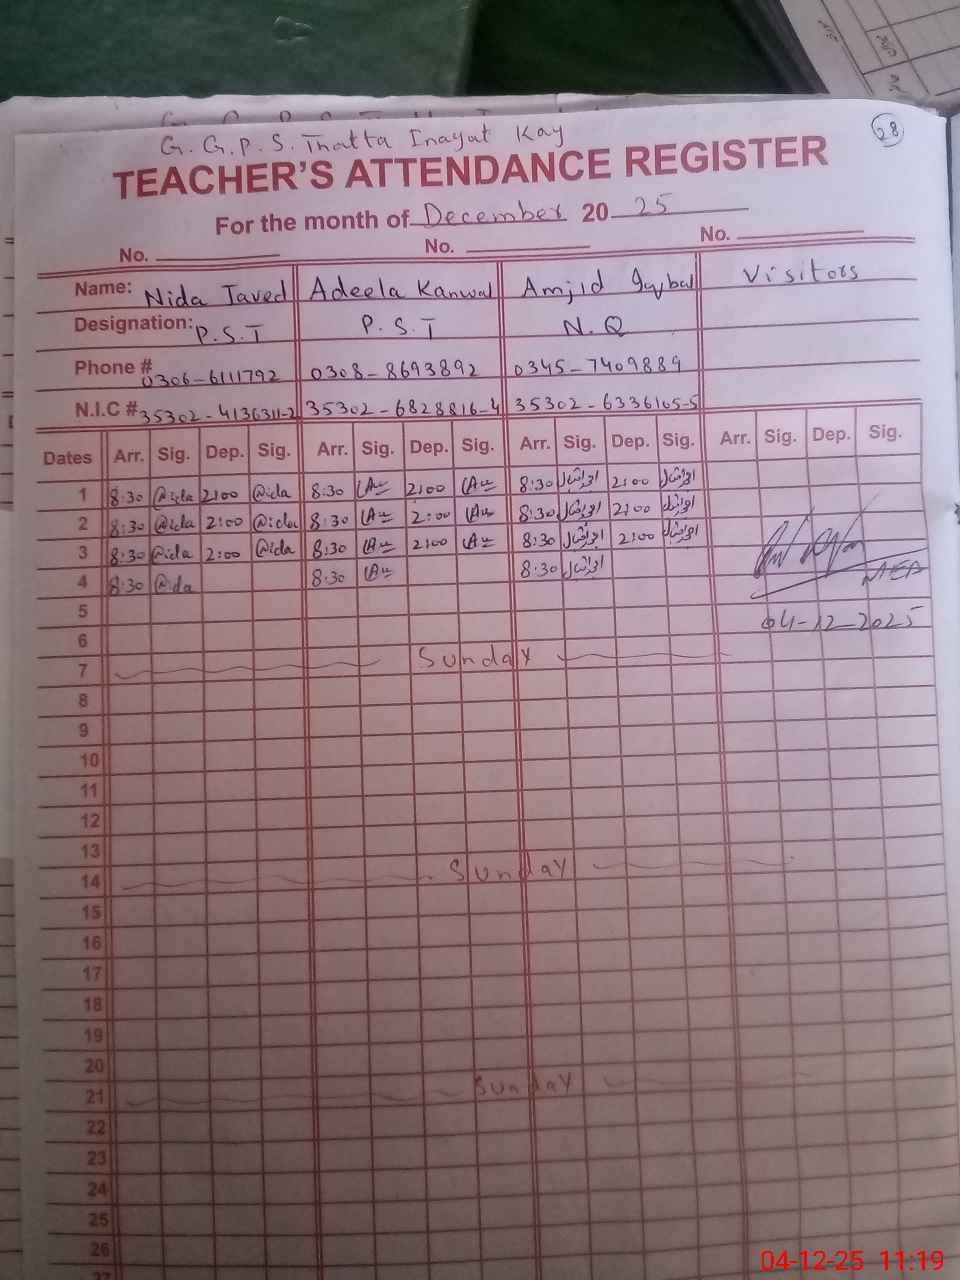 G.G.P.S. Thatta Inayat Kay
28
TEACHER'S ATTENDANCE REGISTER
For the month of December 20 25
No. No. No.
Name: Nida Javed Adeela Kanwal Amjid Iqbal Visitors
Designation: P.S.T P.S.T N.Q
Phone # 0306-6111792 0308-8693892 0345-7409889
N.I.C # 35302-4136311-2 35302-6828816-4 35302-6336105-5
Dates Arr. Sig. Dep. Sig. Arr. Sig. Dep. Sig. Arr. Sig. Dep. Sig. Arr. Sig. Dep. Sig.
1 8:30 @ida 2:00 @ida 8:30 2:00 8:30 2:00
2 8:30 @ida 2:00 @ida 8:30 2:00 8:30 2:00
3 8:30 @ida 2:00 @ida 8:30 2:00 8:30 2:00
4 8:30 @ida 8:30 8:30
AEO
5 04-12-2025
6
7 Sunday
8
9
10
11
12
13
14 Sunday
15
16
17
18
19
20
21 Sunday
22
23
24
25
26
27
04-12-25 11:19